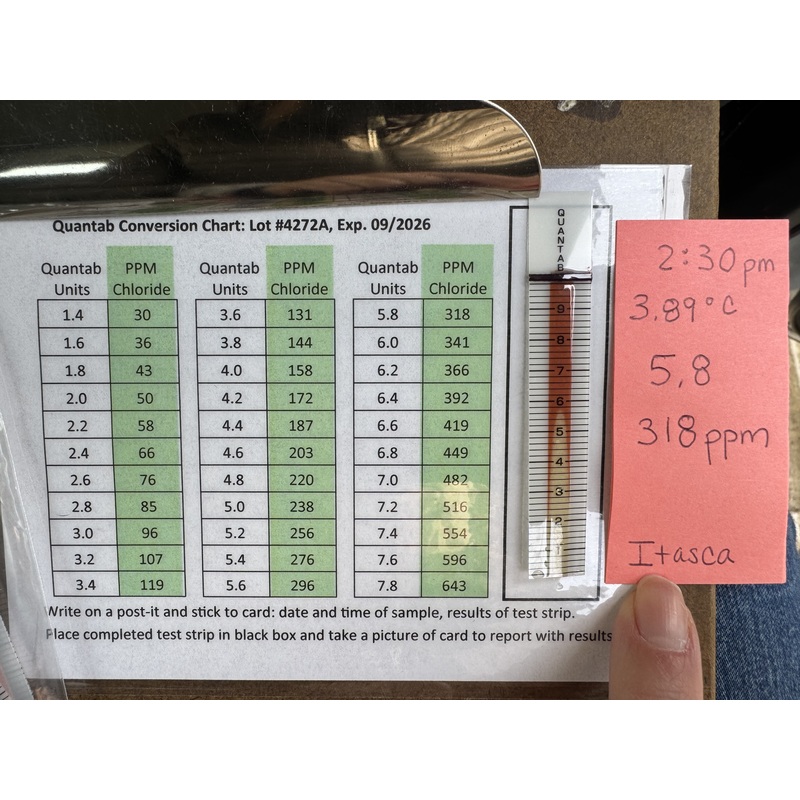 Quantab Conversion Chart: Lot #4272A, Exp. 09/2026
Quantab Units PPM Chloride
1.4 30
1.6 36
1.8 43
2.0 50
2.2 58
2.4 66
2.6 76
2.8 85
3.0 96
3.2 107
3.4 119
Quantab Units PPM Chloride
3.6 131
3.8 144
4.0 158
4.2 172
4.4 187
4.6 203
4.8 220
5.0 238
5.2 256
5.4 276
5.6 296
Quantab Units PPM Chloride
5.8 318
6.0 341
6.2 366
6.4 392
6.6 419
6.8 449
7.0 482
7.2 516
7.4 554
7.6 596
7.8 643
QUANTAB
9
8
7
6
5
4
3
2
1
2:30 pm
3.89°C
5.8
318 ppm
Itasca
Write on a post-it and stick to card: date and time of sample, results of test strip.
Place completed test strip in black box and take a picture of card to report with results